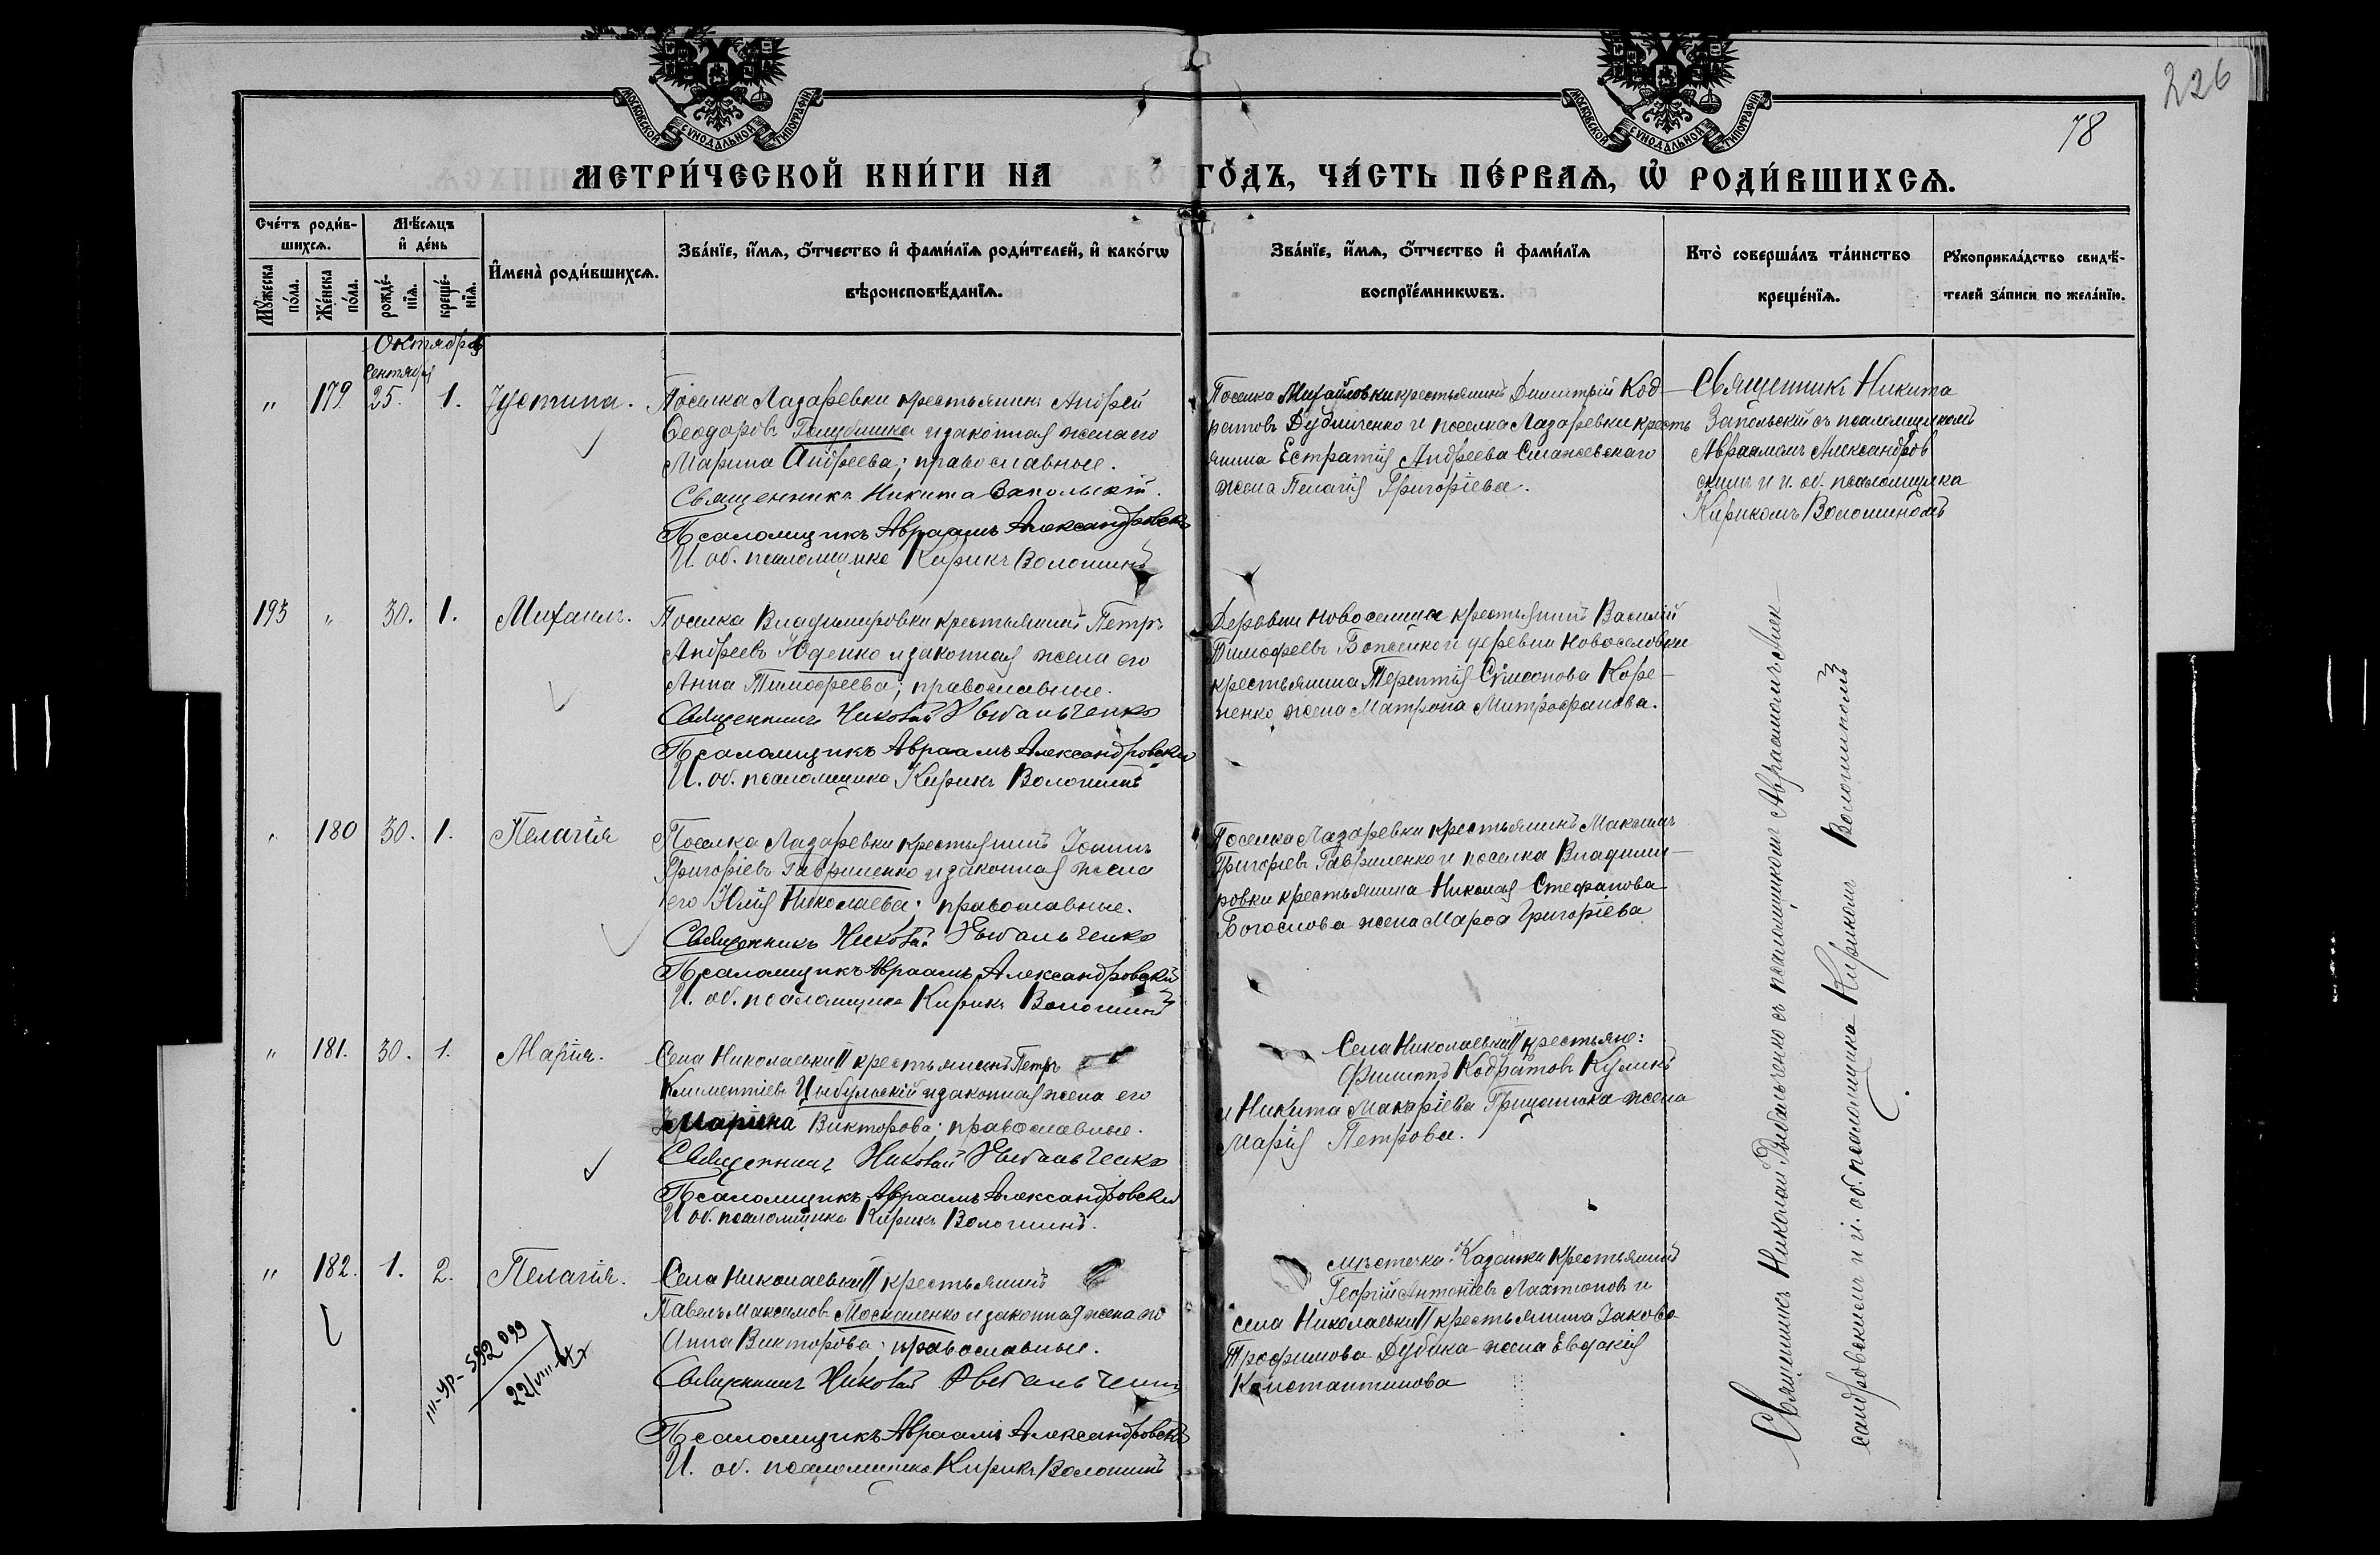 226
78
МОСКОВСКОЙ СѴНОДАЛЬНОЙ ТИПОГРАФІИ
МОСКОВСКОЙ СѴНОДАЛЬНОЙ ТИПОГРАФІИ
МЕТРИ́ЧЕСКОЙ КНИ́ГИ НА ГО́ДЪ, ЧА́СТЬ ПЕ́РВАѦ, Ѡ҆ РОДИ́ВШИХСѦ.
Сче́тъ роди́в-
шихсѧ.
Мꙋ́жеска по́ла.
Же́нска по́ла.
Мѣ́сѧцъ
и҆ де́нь
рожде́-
нїѧ.
креще́-
нїѧ.
И҆мена̀ роди́вшихсѧ.
Зва́нїе, и҆́мѧ, ѻ҆́тчество и҆ фами́лїѧ роди́телей, и҆ како́гѡ
вѣроисповѣ́данїѧ.
Зва́нїе, и҆́мѧ, ѻ҆́тчество и҆ фами́лїѧ
воспрїе́мникѡвъ.
Кто̀ соверша́лъ та́инство
креще́нїѧ.
Рꙋкоприкла́дство свидѣ́-
телей за́писи по жела́нїю.
Октябрь
Сентября
" 179 25. 1. Іустина.
Поселка Лазаревки крестьянинъ Андрей
Ѳеодоровъ и законная жена его
Марина Андреева; православные.
Священникъ Никита Запольскій.
Псаломщикъ Авраамъ Александровскій
И. об. псаломщика Кирикъ Волошинъ
Поселка Михайловки крестьянинъ Димитрій Код-
ратовъ и поселка Лазаревки кресть
янина Естратія Андреева
жена Пелагія Григоріева.
Священникъ Никита
Запольскій съ псаломщикомъ
Авраамомъ Александров
скимъ и и. об. псаломщика
Кирикомъ Волошиномъ
193 " 30. 1. Михаилъ.
Поселка Владимировки крестьянинъ Петръ
Андреевъ Юденко и законная жена его
Анна Тимофеева; православные.
Священникъ Николай Рыбальченко
Псаломщикъ Авраамъ Александровскій
И. об. псаломщика Кирикъ Волошинъ
Деревни Новоселицы крестьянинъ Василій
Тимофеевъ Боженко и деревни Новоселовки
крестьянина Терентія Симонова Коре-
ненко жена Матрона Митрофанова.
" 180 30. 1. Пелагія
Поселка Лазаревки крестьянинъ Іоаннъ
Григоріевъ Гавриленко и законная жена
его Юлія Николаева; православные.
Священникъ Николай Рыбальченко
Псаломщикъ Авраамъ Александровскій
И. об. псаломщика Кирикъ Волошинъ
Поселка Лазаревки крестьянинъ Максимъ
Григорьевъ Гавриленко и поселка Владими-
ровки крестьянина Николая Стефанова
Богослова жена Марѳа Григоріева
" 181. 30. 1. Марія.
Села Николаевки II крестьянинъ Петръ
Климентіевъ Цыбульскій и законная жена его
Марина Викторова; православные.
Священникъ Николай Рыбальченко
Псаломщикъ Авраамъ Александровскій
И об. псаломщика Кирикъ Волошинъ.
Села Николаевки II крестьяне:
Филиппъ Кодратовъ Кулинъ
и Никита Макаріева Грицанюка жена
Марія Петрова.
" 182. 1. 2. Пелагія.
Села Николаевки II крестьянинъ
Павелъ Максимовъ Москаленко и законная жена его
Анна Викторова; православные.
Священникъ Николай Рыбальченко
Псаломщикъ Авраамъ Александровскій
И. об. псаломщика Кирикъ Волошинъ
мѣстечка Казанки крестьянинъ
Георгій Антоніевъ Лахтіоновъ и
села Николаевки II крестьянина Іакова
Трофимова Дубика жена Евдокія
Константинова
III-УР-592099
22/VIII-
Священникъ Николай Рыбальченко съ псаломщикомъ Авраамомъ Алек-
сандровскимъ и и. об. псаломщика Кирикомъ Волошиномъ